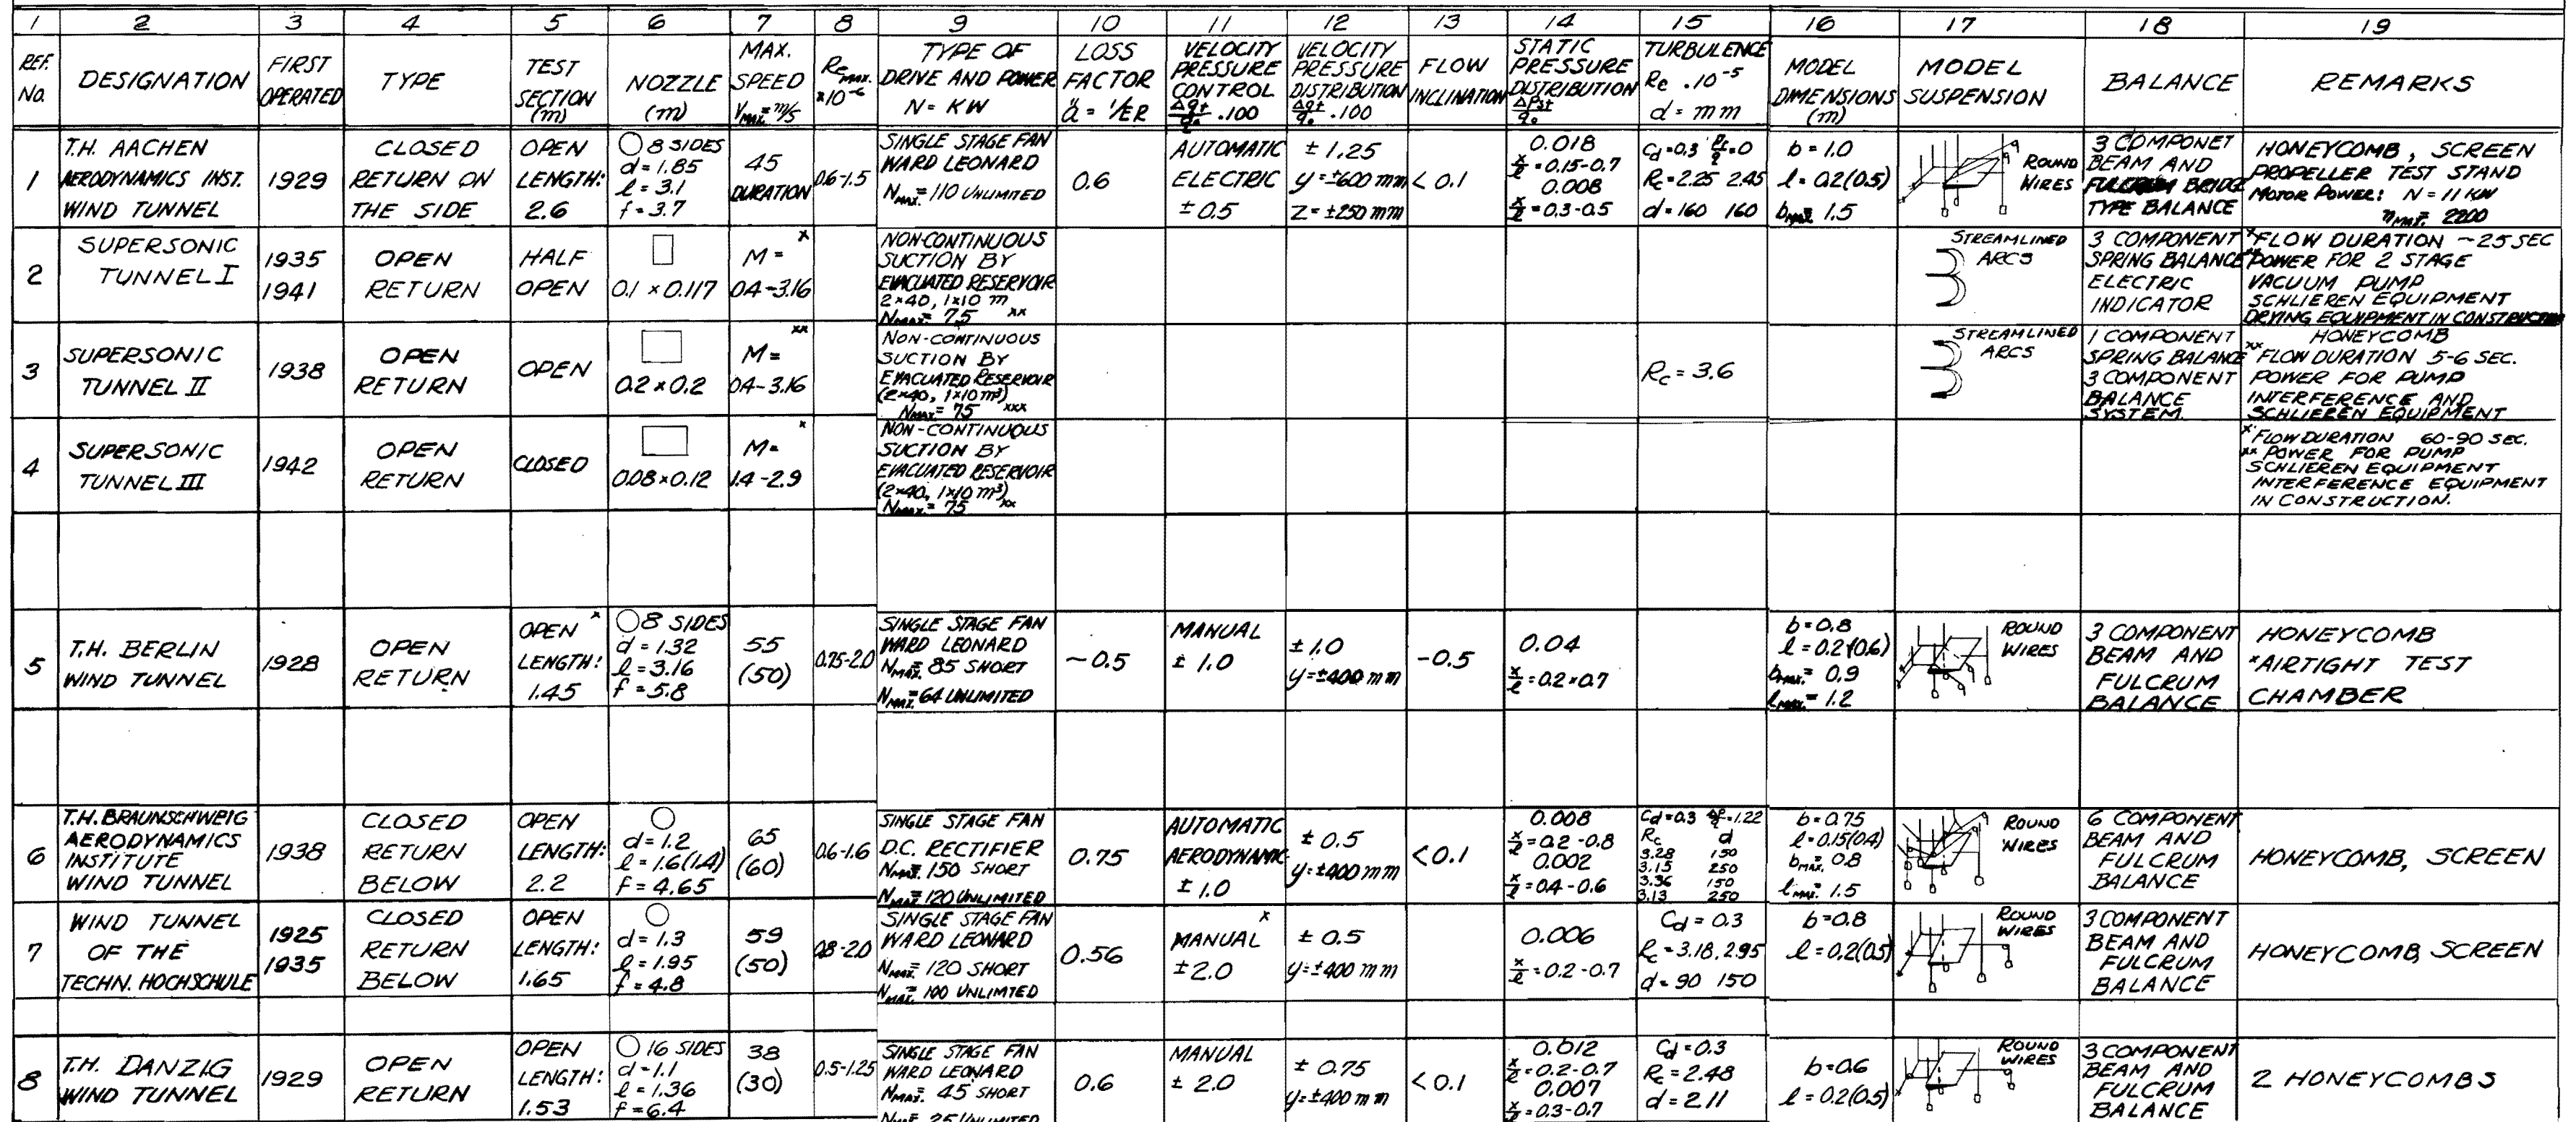 1 2 3 4 5 6 7 8 9 10 11 12 13 14 15 16 17 18 19
REF. No.
DESIGNATION
FIRST OPERATED
TYPE
TEST SECTION (m)
NOZZLE (m)
MAX. SPEED VMAX.=m/s
Re MAX. ×10⁻⁶
TYPE OF DRIVE AND POWER N= KW
LOSS FACTOR ä = 1/ER
VELOCITY PRESSURE CONTROL .100
VELOCITY PRESSURE DISTRIBUTION .100
FLOW INCLINATION
STATIC PRESSURE DISTRIBUTION
TURBULENCE Re .10⁻⁵ d = mm
MODEL DIMENSIONS (m)
MODEL SUSPENSION
BALANCE
REMARKS
1
T.H. AACHEN
AERODYNAMICS INST.
WIND TUNNEL
1929
CLOSED
RETURN ON
THE SIDE
OPEN
LENGTH:
2.6
8 SIDES
d = 1.85
l = 3.1
f = 3.7
45
DURATION
0.6-1.5
SINGLE STAGE FAN
WARD LEONARD
NMAX.= 110 UNLIMITED
0.6
AUTOMATIC
ELECTRIC
± 0.5
± 1.25
y = ±600 mm
Z = ±250 mm
< 0.1
0.018
x/l = 0.15-0.7
0.008
x/l = 0.3-0.5
Cd=0.3 =0
Rc=2.25 2.45
d=160 160
b = 1.0
l = 0.2(0.5)
bMAX.= 1.5
ROUND
WIRES
3 COMPONET
BEAM AND
FULCRUM BRIDGE
TYPE BALANCE
HONEYCOMB, SCREEN
PROPELLER TEST STAND
MOTOR POWER: N = 11 KW
nMAX.= 2200
2
SUPERSONIC
TUNNEL I
1935
1941
OPEN
RETURN
HALF
OPEN
0.1 × 0.117
M = x
0.4-3.16
NON-CONTINUOUS
SUCTION BY
EVACUATED RESERVOIR
2×40, 1×10 m
NMAX.= 75 xx
STREAMLINED
ARCS
3 COMPONENT
SPRING BALANCE
ELECTRIC
INDICATOR
x FLOW DURATION ~25 SEC
xx POWER FOR 2 STAGE
VACUUM PUMP
SCHLIEREN EQUIPMENT
DRYING EQUIPMENT IN CONSTRUCTION
3
SUPERSONIC
TUNNEL II
1938
OPEN
RETURN
OPEN
0.2 × 0.2
M = xx
0.4-3.16
NON-CONTINUOUS
SUCTION BY
EVACUATED RESERVOIR
(2×40, 1×10 m³)
NMAX.= 75 xxx
Rc = 3.6
STREAMLINED
ARCS
1 COMPONENT
SPRING BALANCE
3 COMPONENT
BALANCE
SYSTEM.
HONEYCOMB
xx FLOW DURATION 5-6 SEC.
POWER FOR PUMP
INTERFERENCE AND
SCHLIEREN EQUIPMENT
4
SUPERSONIC
TUNNEL III
1942
OPEN
RETURN
CLOSED
0.08×0.12
M= x
1.4-2.9
NON-CONTINUOUS
SUCTION BY
EVACUATED RESERVOIR
(2×40, 1×10 m³)
NMAX.= 75 xx
x FLOW DURATION 60-90 SEC.
xx POWER FOR PUMP
SCHLIEREN EQUIPMENT
INTERFERENCE EQUIPMENT
IN CONSTRUCTION.
5
T.H. BERLIN
WIND TUNNEL
1928
OPEN
RETURN
OPEN x
LENGTH:
1.45
8 SIDES
d = 1.32
l = 3.16
f = 5.8
55
(50)
0.75-2.0
SINGLE STAGE FAN
WARD LEONARD
NMAX.= 85 SHORT
NMAX.= 64 UNLIMITED
~0.5
MANUAL
± 1.0
± 1.0
y=±400 mm
-0.5
0.04
x/l = 0.2×0.7
b = 0.8
l = 0.2(0.6)
bMAX.= 0.9
lMAX.= 1.2
ROUND
WIRES
3 COMPONENT
BEAM AND
FULCRUM
BALANCE
HONEYCOMB
x AIRTIGHT TEST
CHAMBER
6
T.H. BRAUNSCHWEIG
AERODYNAMICS
INSTITUTE
WIND TUNNEL
1938
CLOSED
RETURN
BELOW
OPEN
LENGTH:
2.2
d = 1.2
l = 1.6(1.4)
f = 4.65
65
(60)
0.6-1.6
SINGLE STAGE FAN
D.C. RECTIFIER
NMAX. 150 SHORT
NMAX.= 120 UNLIMITED
0.75
AUTOMATIC
AERODYNAMIC
± 1.0
± 0.5
y=±400 mm
<0.1
0.008
x/l = 0.2-0.8
0.002
x/l = 0.4-0.6
Cd=0.3 =1.22
Rc d
3.28 150
3.15 250
3.36 150
3.13 250
b = 0.75
l = 0.15(0.4)
bMAX.= 0.8
lMAX.= 1.5
ROUND
WIRES
6 COMPONENT
BEAM AND
FULCRUM
BALANCE
HONEYCOMB, SCREEN
7
WIND TUNNEL
OF THE
TECHN. HOCHSCHULE
1925
1935
CLOSED
RETURN
BELOW
OPEN
LENGTH:
1.65
d = 1.3
l = 1.95
f = 4.8
59
(50)
0.8-2.0
SINGLE STAGE FAN
WARD LEONARD
NMAX.= 120 SHORT
NMAX.= 100 UNLIMTED
0.56
x
MANUAL
± 2.0
± 0.5
y=±400 mm
0.006
x/l = 0.2-0.7
Cd = 0.3
Rc = 3.18, 2.95
d = 90 150
b = 0.8
l = 0.2(0.5)
ROUND
WIRES
3 COMPONENT
BEAM AND
FULCRUM
BALANCE
HONEYCOMB, SCREEN
8
T.H. DANZIG
WIND TUNNEL
1929
OPEN
RETURN
OPEN
LENGTH:
1.53
16 SIDES
d = 1.1
l = 1.36
f = 6.4
38
(30)
0.5-1.25
SINGLE STAGE FAN
WARD LEONARD
NMAX. 45 SHORT
NMAX.= 25 UNLIMITED
0.6
MANUAL
± 2.0
± 0.75
y=±400 mm
< 0.1
0.012
x/l = 0.2-0.7
0.007
x/l = 0.3-0.7
Cd = 0.3
Rc = 2.48
d = 211
b = 0.6
l = 0.2(0.5)
ROUND
WIRES
3 COMPONENT
BEAM AND
FULCRUM
BALANCE
2 HONEYCOMBS